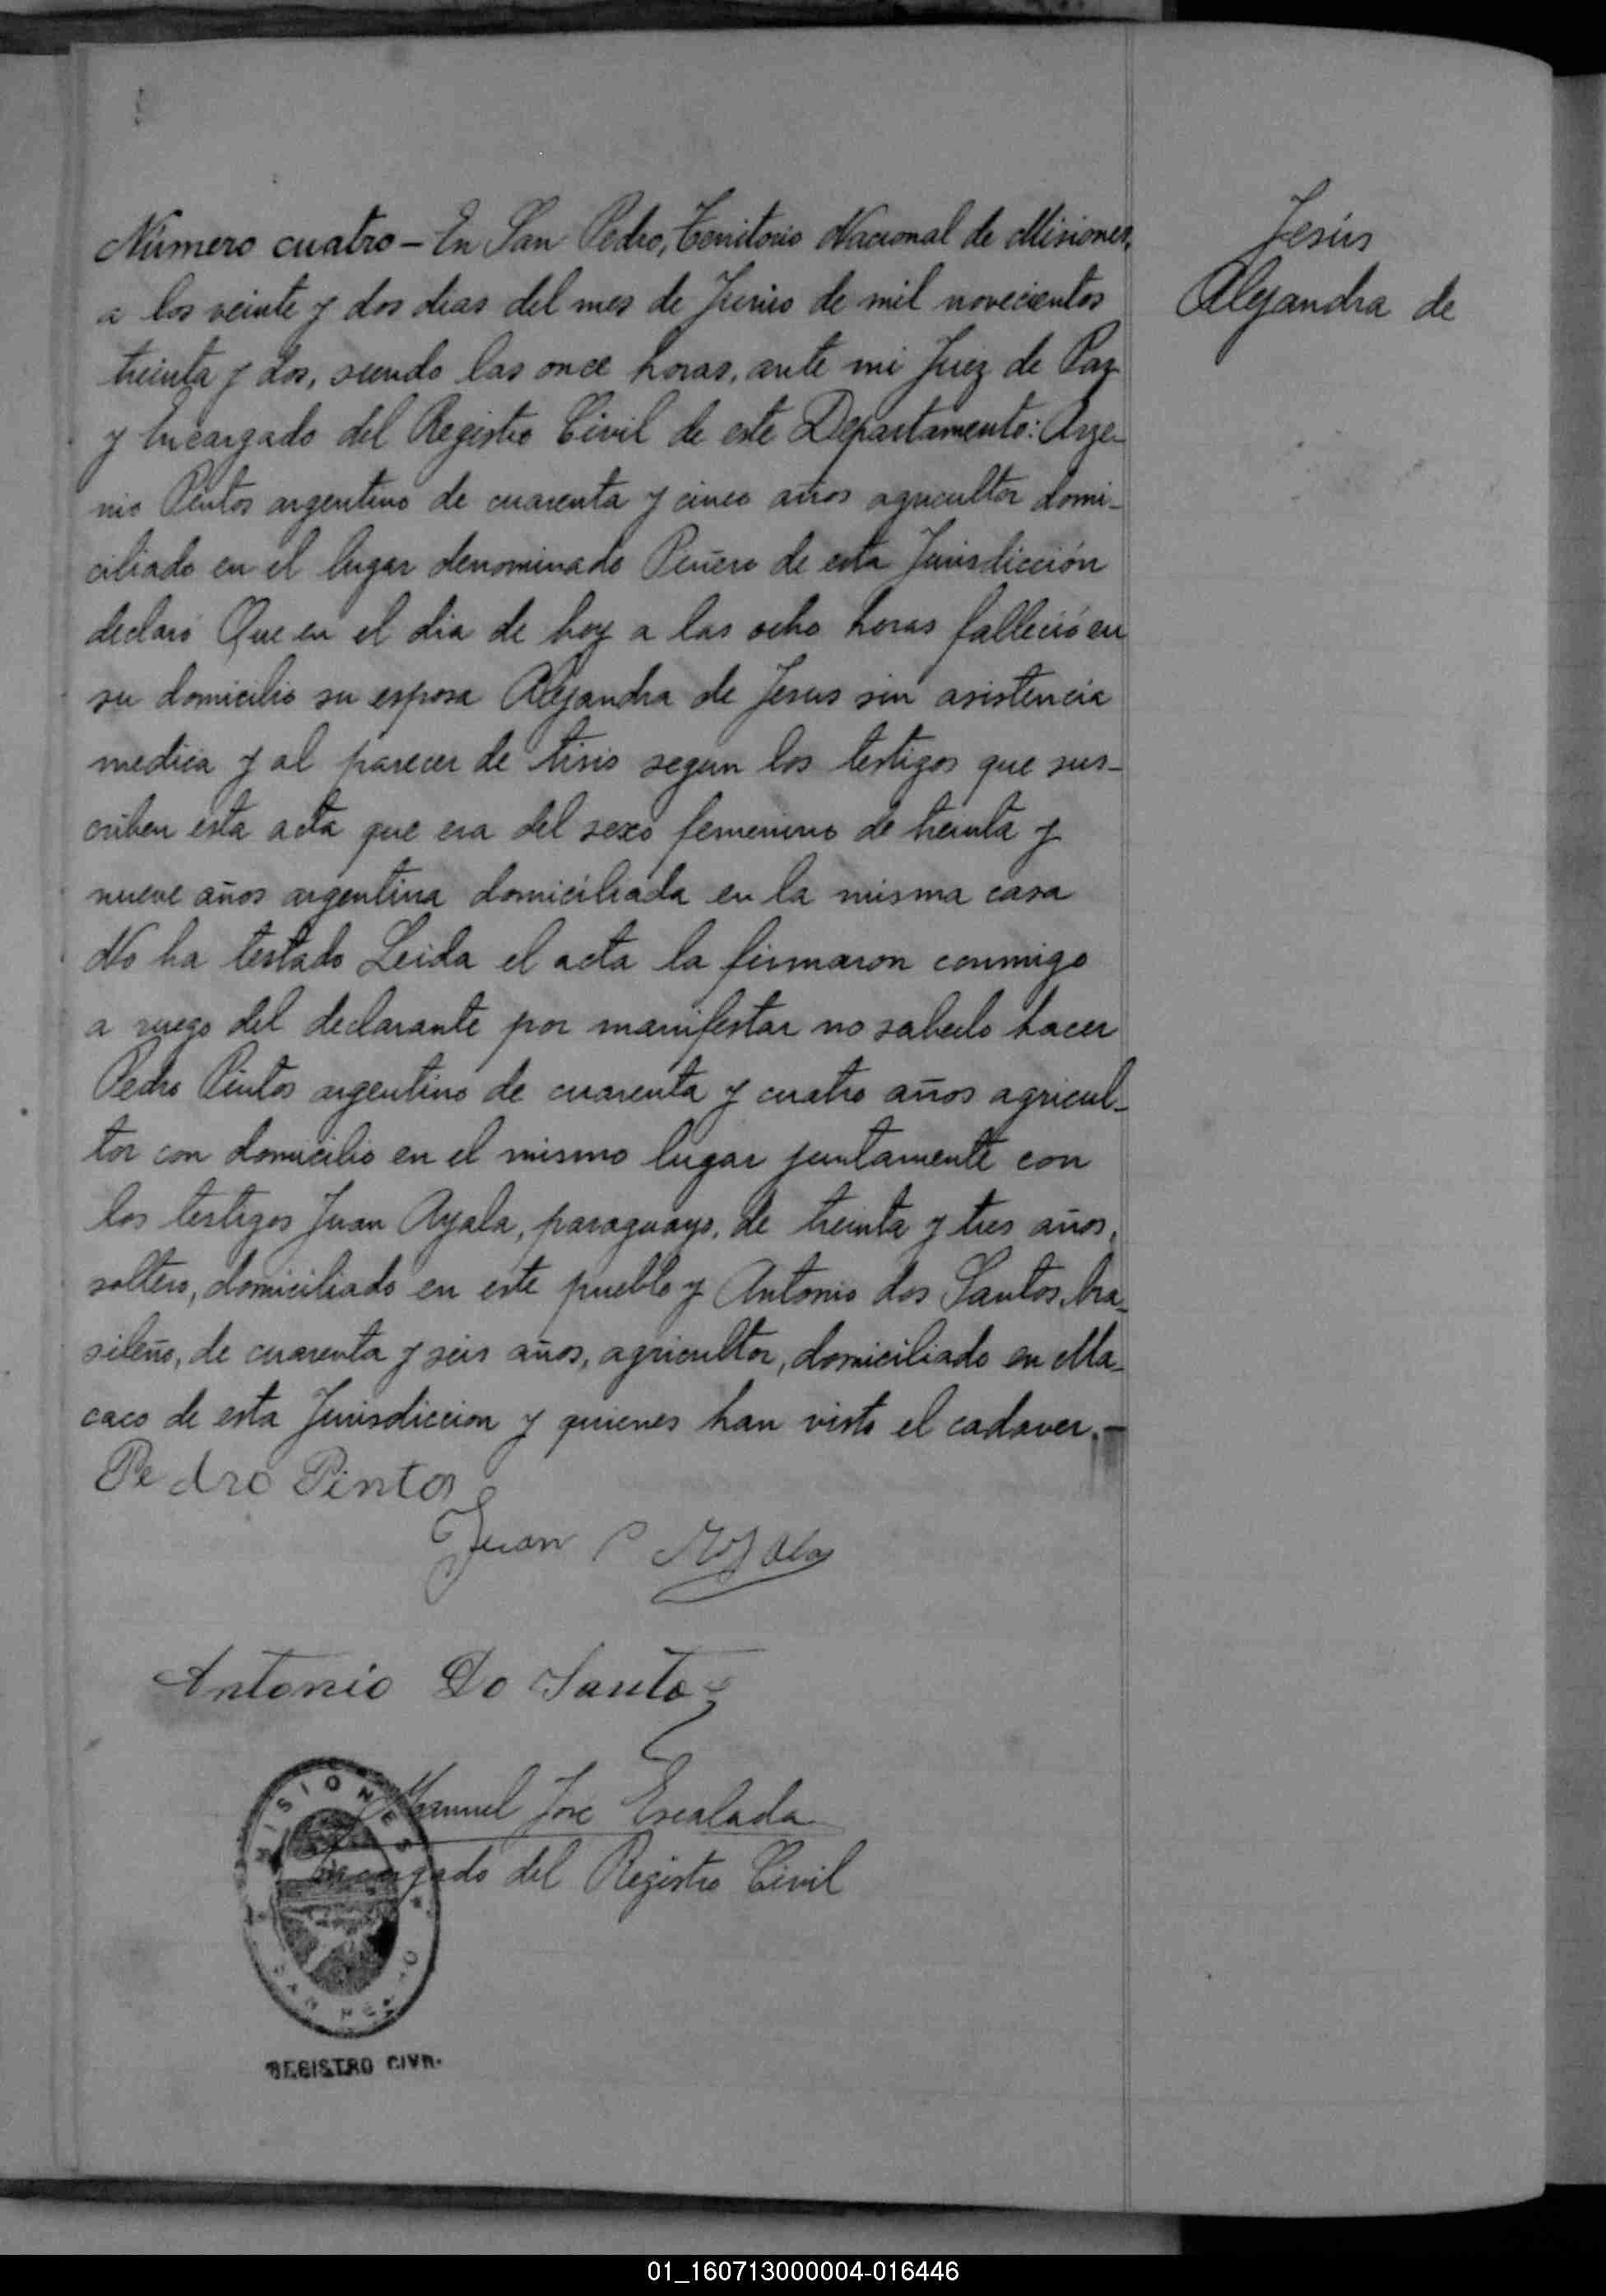 Número cuatro - En San Pedro, Territorio Nacional de Misiones,
a los veinte y dos dias del mes de Junio de mil novecientos
treinta y dos, siendo las once horas, ante mi Juez de Paz
y Encargado del Registro Civil de este Departamento: Arge-
nio Pintos argentino de cuarenta y cinco años agricultor domi-
ciliado en el lugar denominado Peñero de esta Jurisdicción
declaró Que en el dia de hoy a las ocho horas falleció en
su domicilio su esposa Alejandra de Jesus sin asistencia
medica y al parecer de tisis segun los testigos que sus-
criben esta acta que era del sexo femenino de treinta y
nueve años argentina domiciliada en la misma casa
No ha testado Leida el acta la firmaron conmigo
a ruego del declarante por manifestar no saberlo hacer
Pedro Pintos argentino de cuarenta y cuatro años agricul-
tor con domicilio en el mismo lugar juntamente con
los testigos Juan Ayala, paraguayo, de treinta y tres años,
soltero, domiciliado en este pueblo y Antonio dos Santos, bra-
sileño, de cuarenta y seis años, agricultor, domiciliado en Ma-
caco de esta Jurisdiccion y quienes han visto el cadaver. -
Pedro Pintos
Juan P Ayala
Antonio Do Santos
Manuel José Escalada
Encargado del Registro Civil
MISIONES
SAN PEDRO
REGISTRO CIVIL
Jesús
Alejandra de
01_160713000004-016446